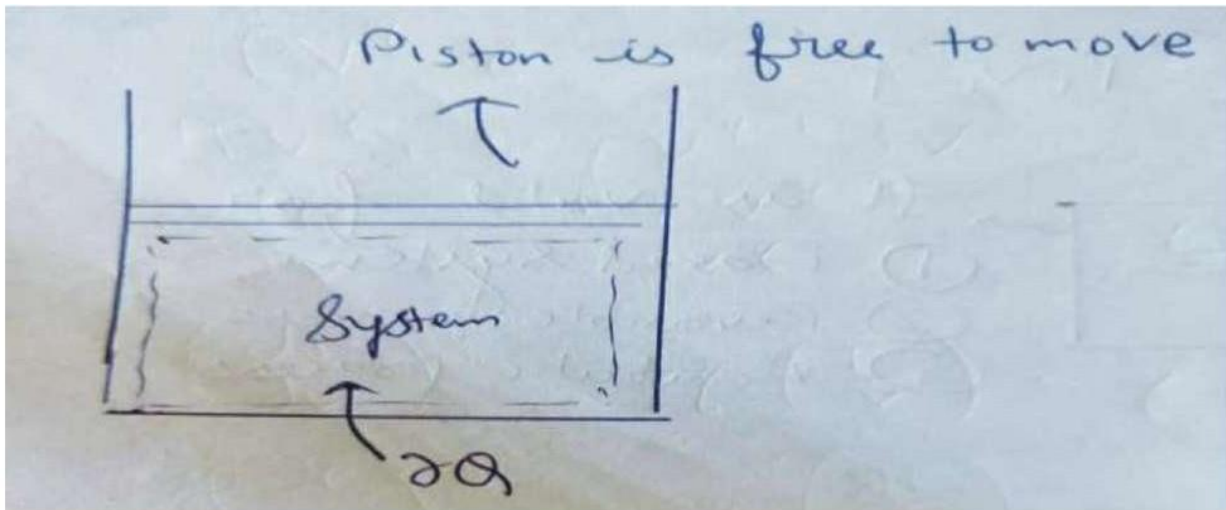 Piston is free to move
System
∂Q